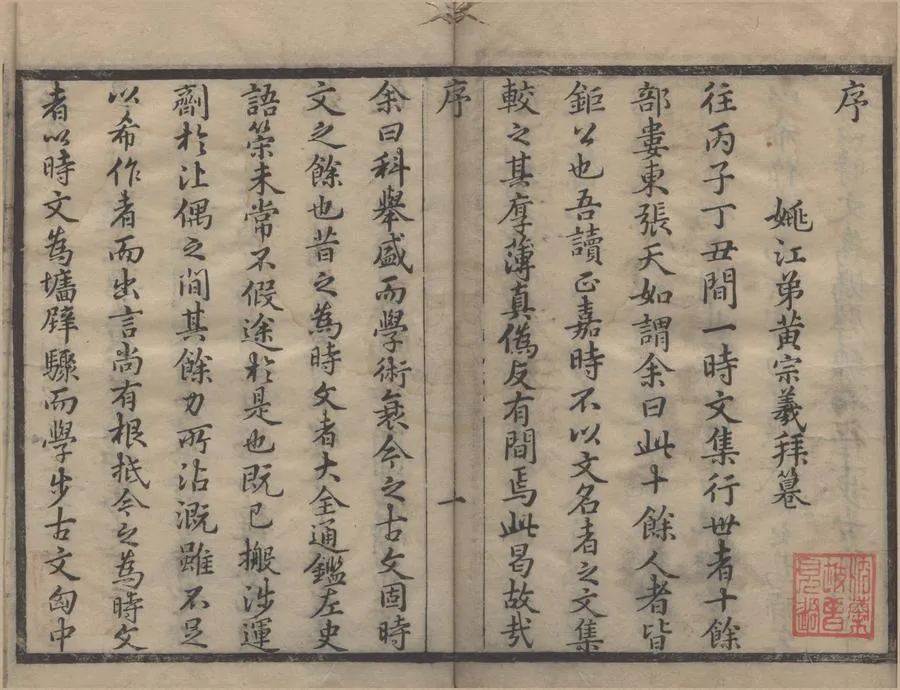 序
姚江弟黄宗羲拜篹
往丙子丁丑間一時文集行世者十餘
部婁東張天如謂余曰此十餘人者皆
鉅公也吾讀正嘉時不以文名者之文集
較之其厚薄真僞反有間焉此曷故㢤
序
一
余曰科舉盛而學術衰今之古文固時
文之餘也昔之為時文者大全通鑑左史
語策未常不假途於是也既已搬涉運
劑於比偶之間其餘力所沾溉雖不足
以希作者而出言尚有根抵今之為時文
者以時文為墻壁驟而學步古文匈中